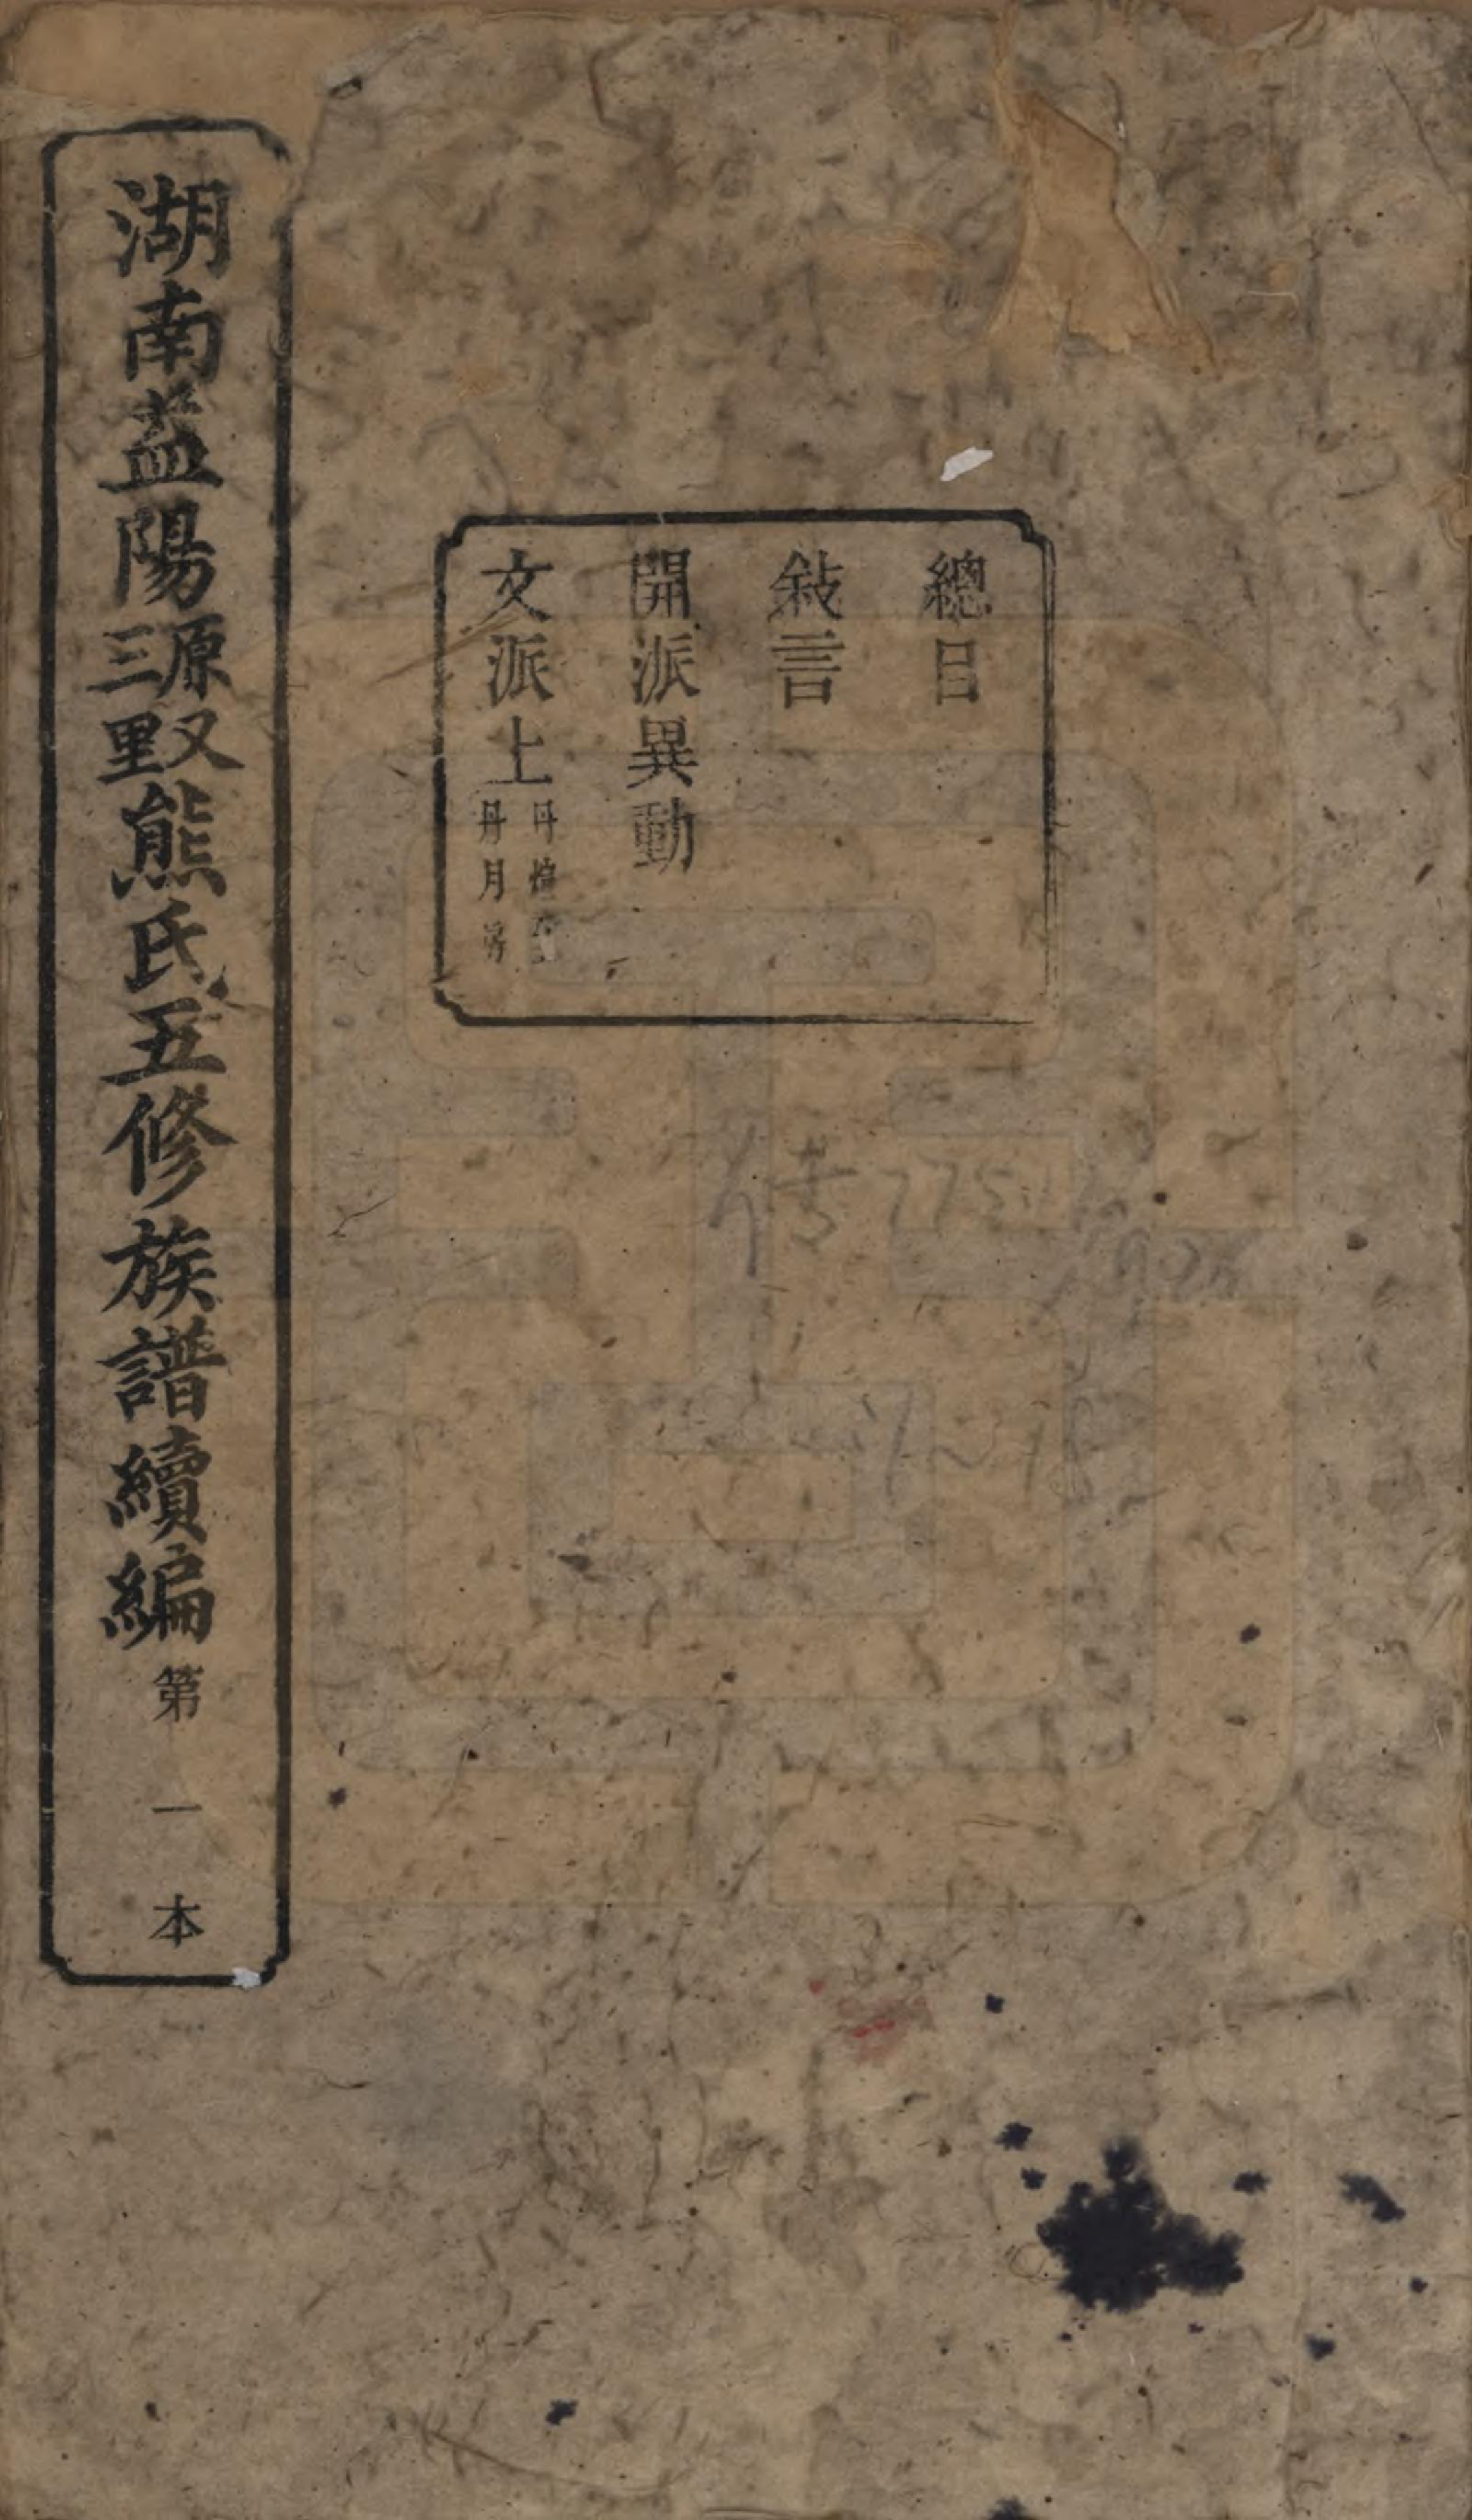 總目
敍言
開派異動
文派上
丹煌至
丹月房
湖南益陽
原又
三里
熊氏五修族譜續編
第一本